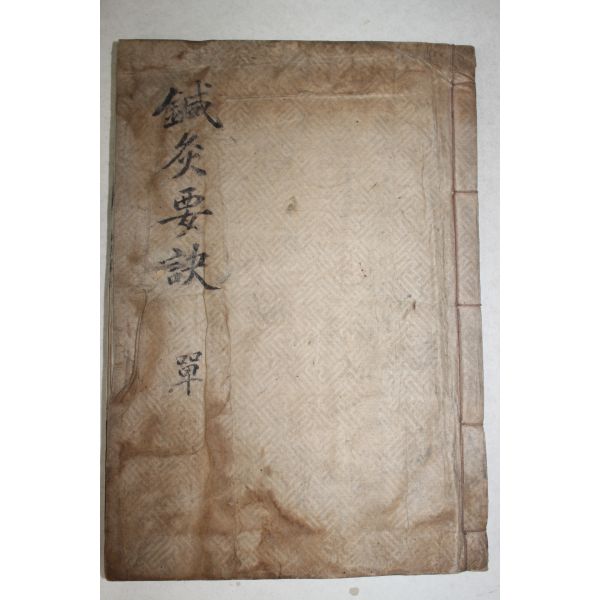 鍼灸要訣
單